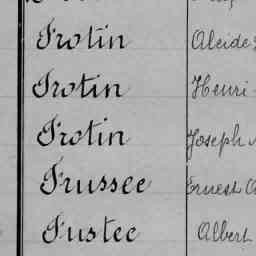 Trotin Alcide
Trotin Henri
Trotin Joseph
Trussee Ernest
Tustee Albert